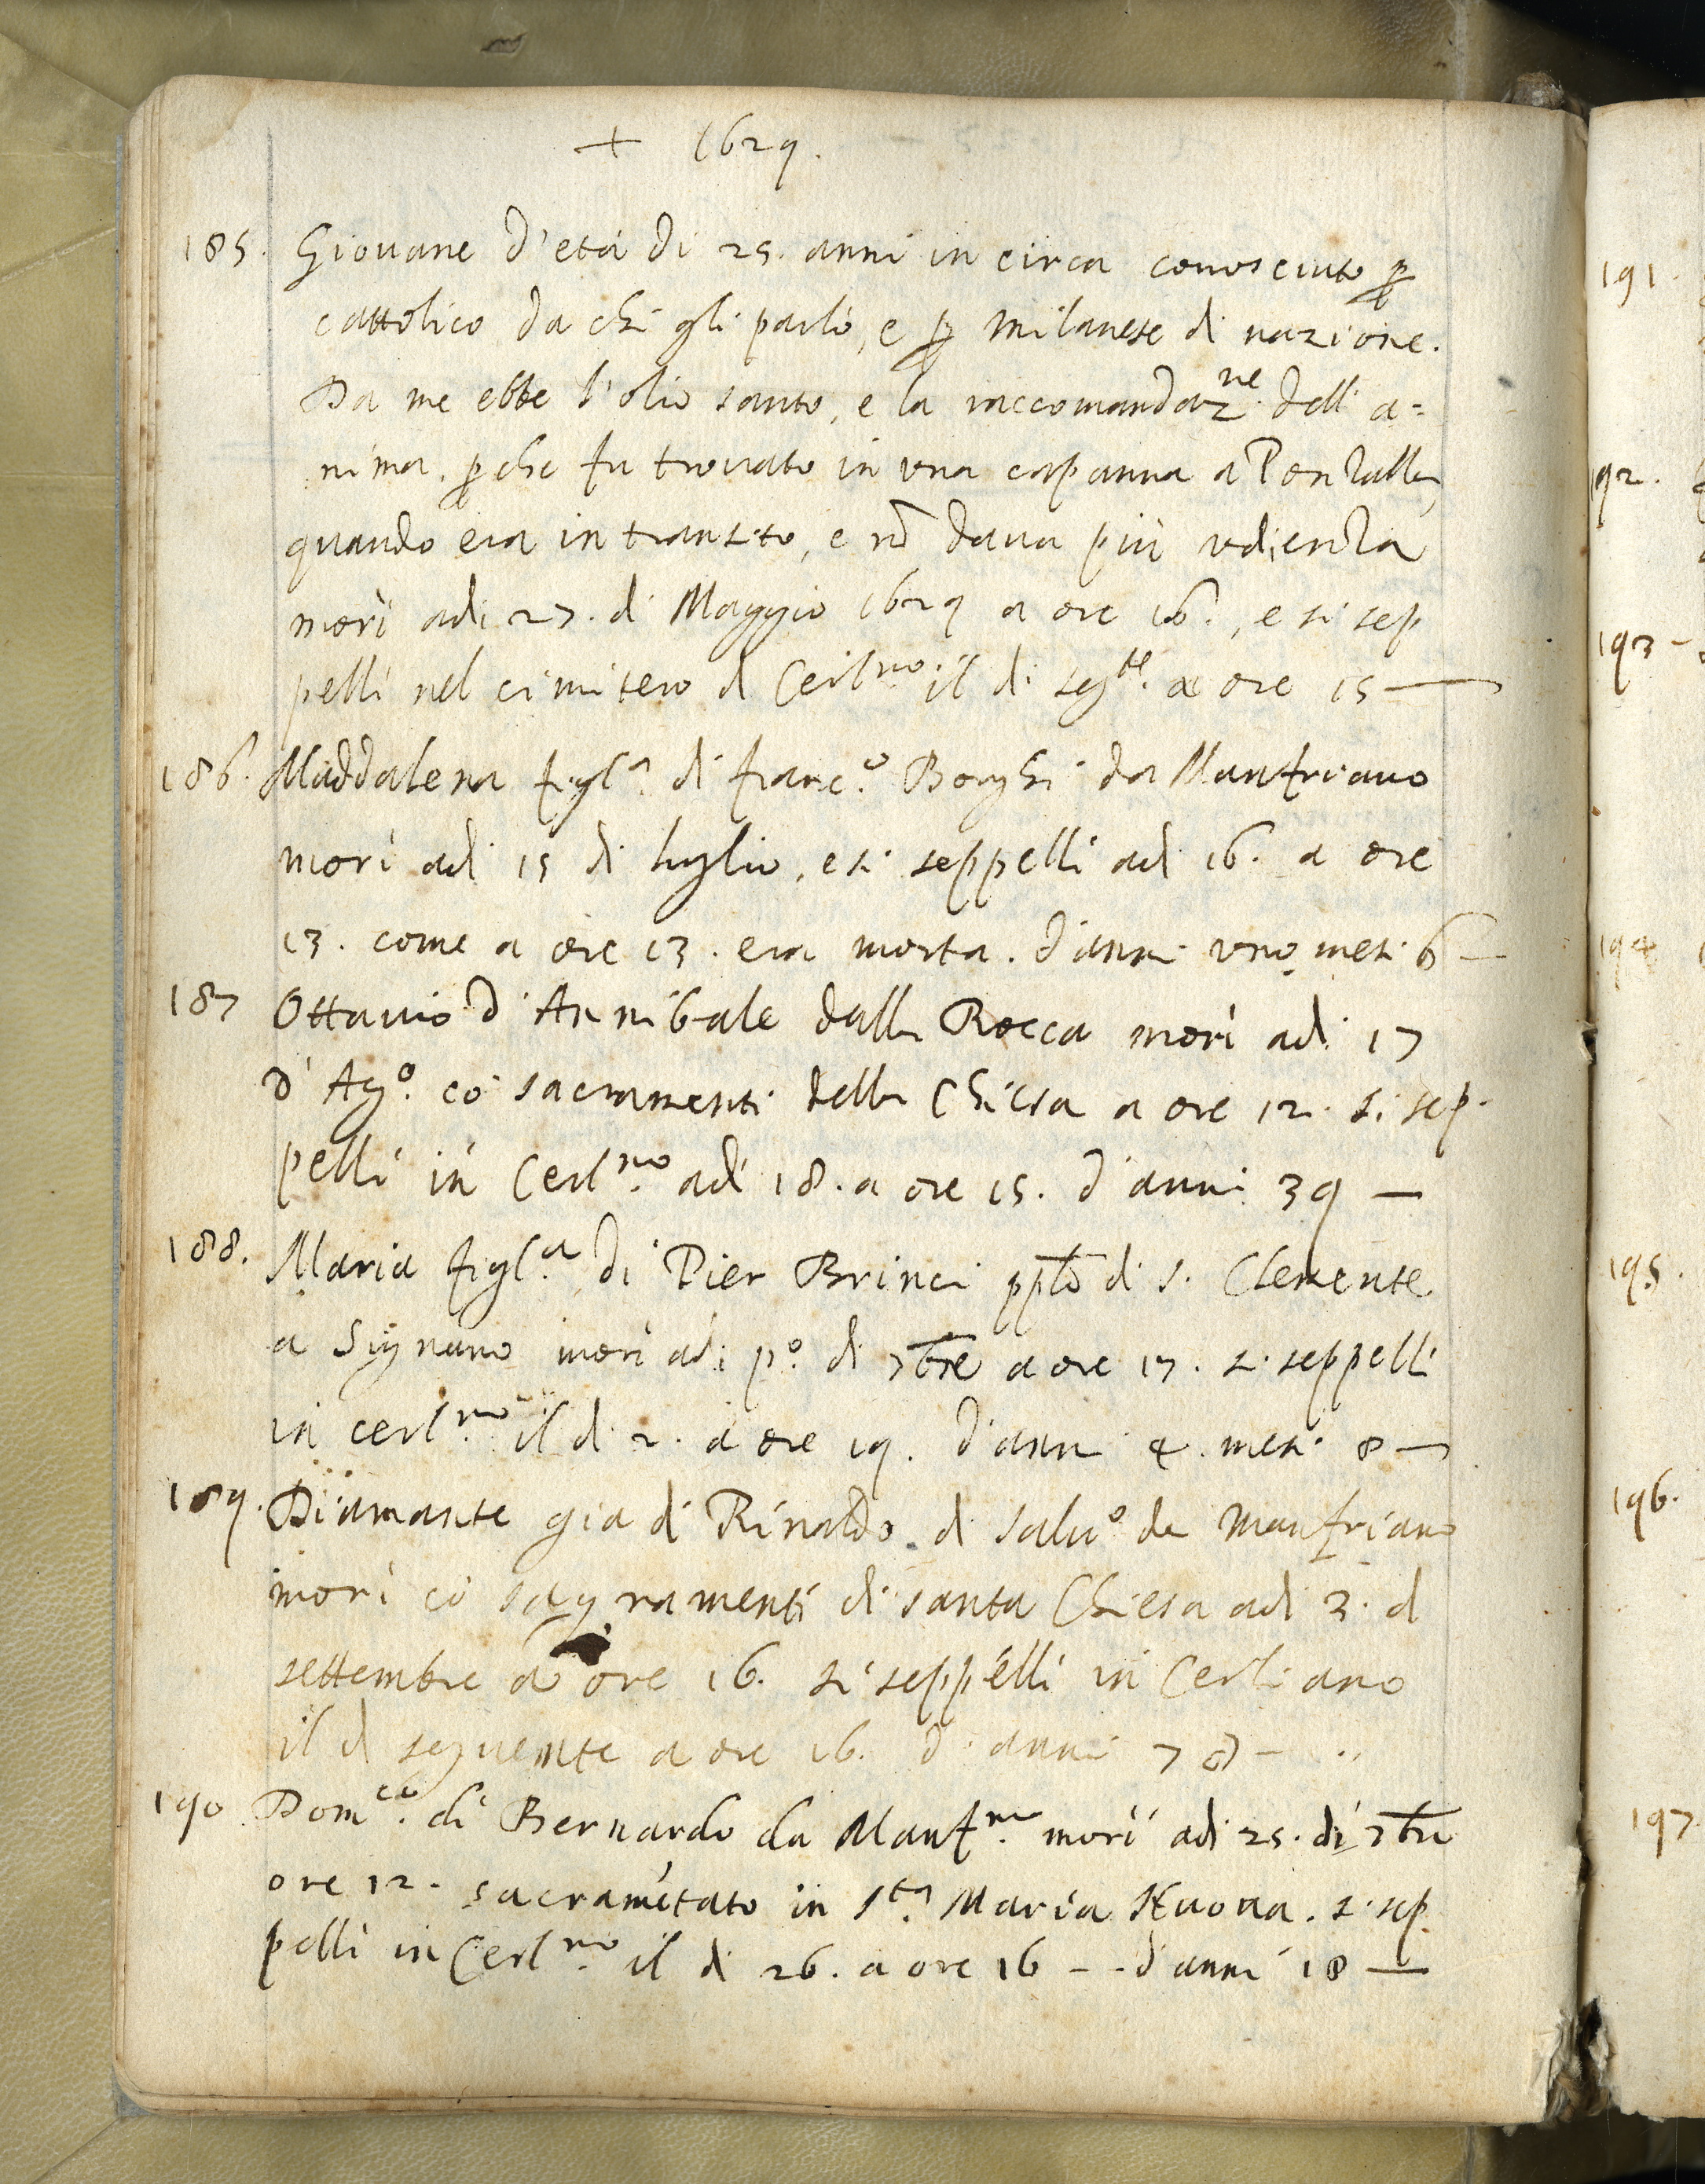 + 1629.
185. Giovane d'età di 25. anni in circa conosciuto p
cattolico da chi gli parlò, e p milanese di nazione.
Da me ebbe l'olio santo, e la raccomandaz.ne dell' a=
nima. pche fu trovato in una capanna a Pontalla
quando era in transito, e nō dava più udienza
morì adi 27. di Maggio 1629 a ore 16., e si sep
pellì nel cimitero di Cerl.no il dì seg.te a ore 15 —
186. Maddalena figl.a di franc.o Borghi da Manfriano
morì adi 15 di luglio, e si seppellì adi 16. a ore
13. come a ore 13. era morta. d'anni uno mesi 6 —
187 Ottavio d'Annibale dalla Rocca morì adi 17
d'Ag.o co' sacramenti della Chiesa a ore 12. si sep-
pellì in Cerl.no adi 18. a ore 15. d'anni 39 —
188. Maria figl.a di Pier Brinci pplo di S. Clemente
a Signano morì adi p.o di 7bre a ore 17. si seppellì
in cerl.no il dì 2. a ore 19. d'anni 4. mesi 8 —
189. Diamante gia di Rinaldo di salv.o da Manfriano
morì co' sagramenti di santa Chiesa adi 3. di
settembre a ore 16. si seppellì in Cerliano
il dì seguente a ore 16. d'anni 78 —
190 Dom.co di Bernardo da Manf.no morì adi 25. di 7bre
ore 12. sacramētato in S.ta Maria Nuova. si sep
pellì in Cerl.no il dì 26. a ore 16 -- d'anni 18 —
191.
192.
193 -
194
195.
196.
197.